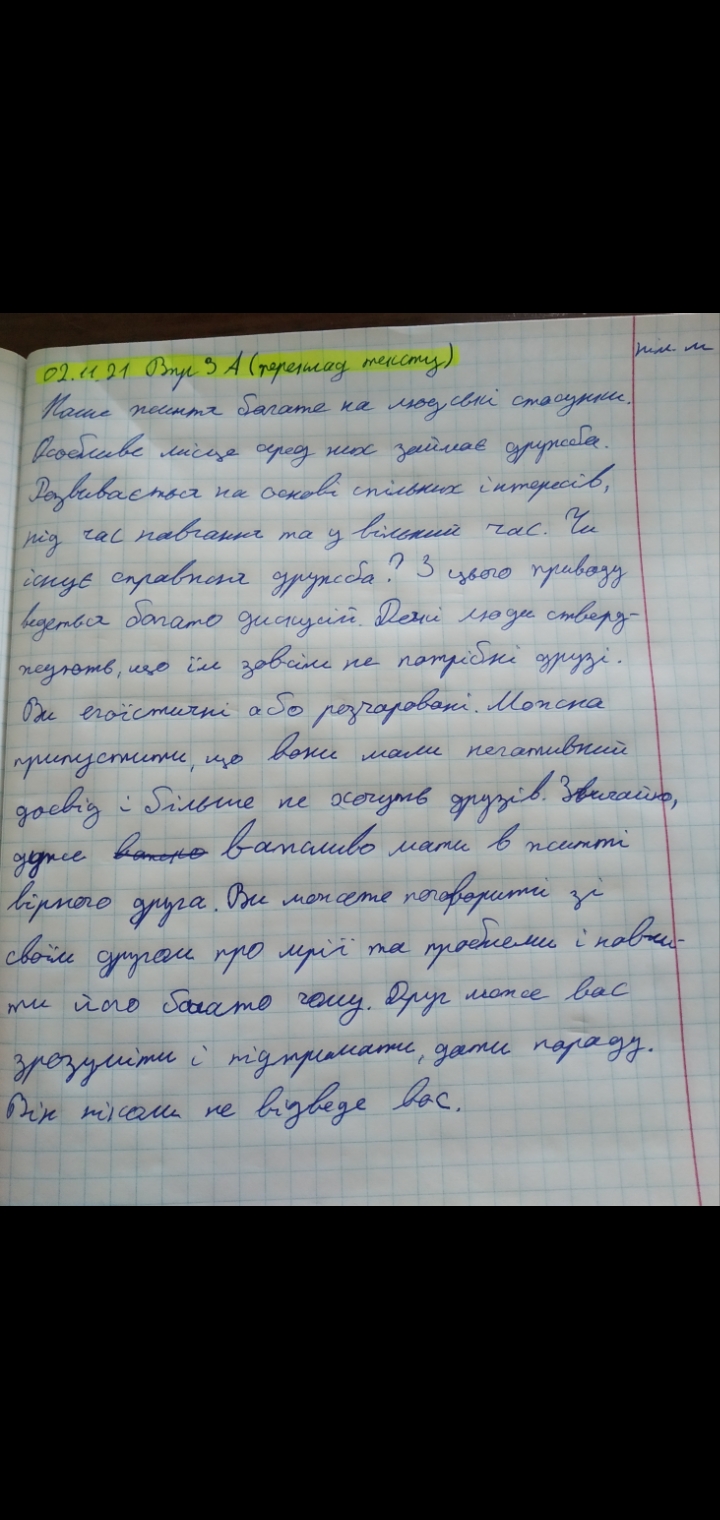 02.11.21 Впр 3 А (переклад тексту)
Наше життя багате на людські стосунки.
Особливе місце серед них займає дружба.
Розвивається на основі спільних інтересів,
під час навчання та у вільний час. Чи
існує справжня дружба? З цього приводу
ведеться багато дискусій. Деякі люди стверд-
жують, що їм зовсім не потрібні друзі.
Ви егоїстичні або розчаровані. Можна
припустити, що вони мали негативний
досвід і більше не хочуть друзів. Звичайно,
дуже важливо мати в житті
вірного друга. Ви можете поговорити зі
своїм другом про мрії та проблеми і навчи-
ти його багато чому. Друг може вас
зрозуміти і підтримати, дати пораду.
Він ніколи не відведе вас.